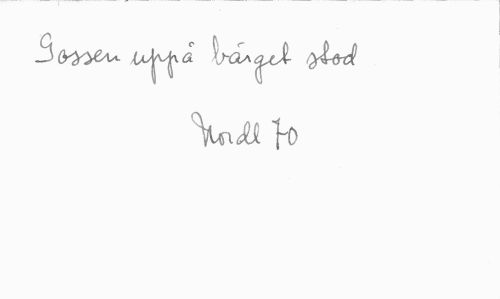 Gossen uppå bärget stod
Nordl 70